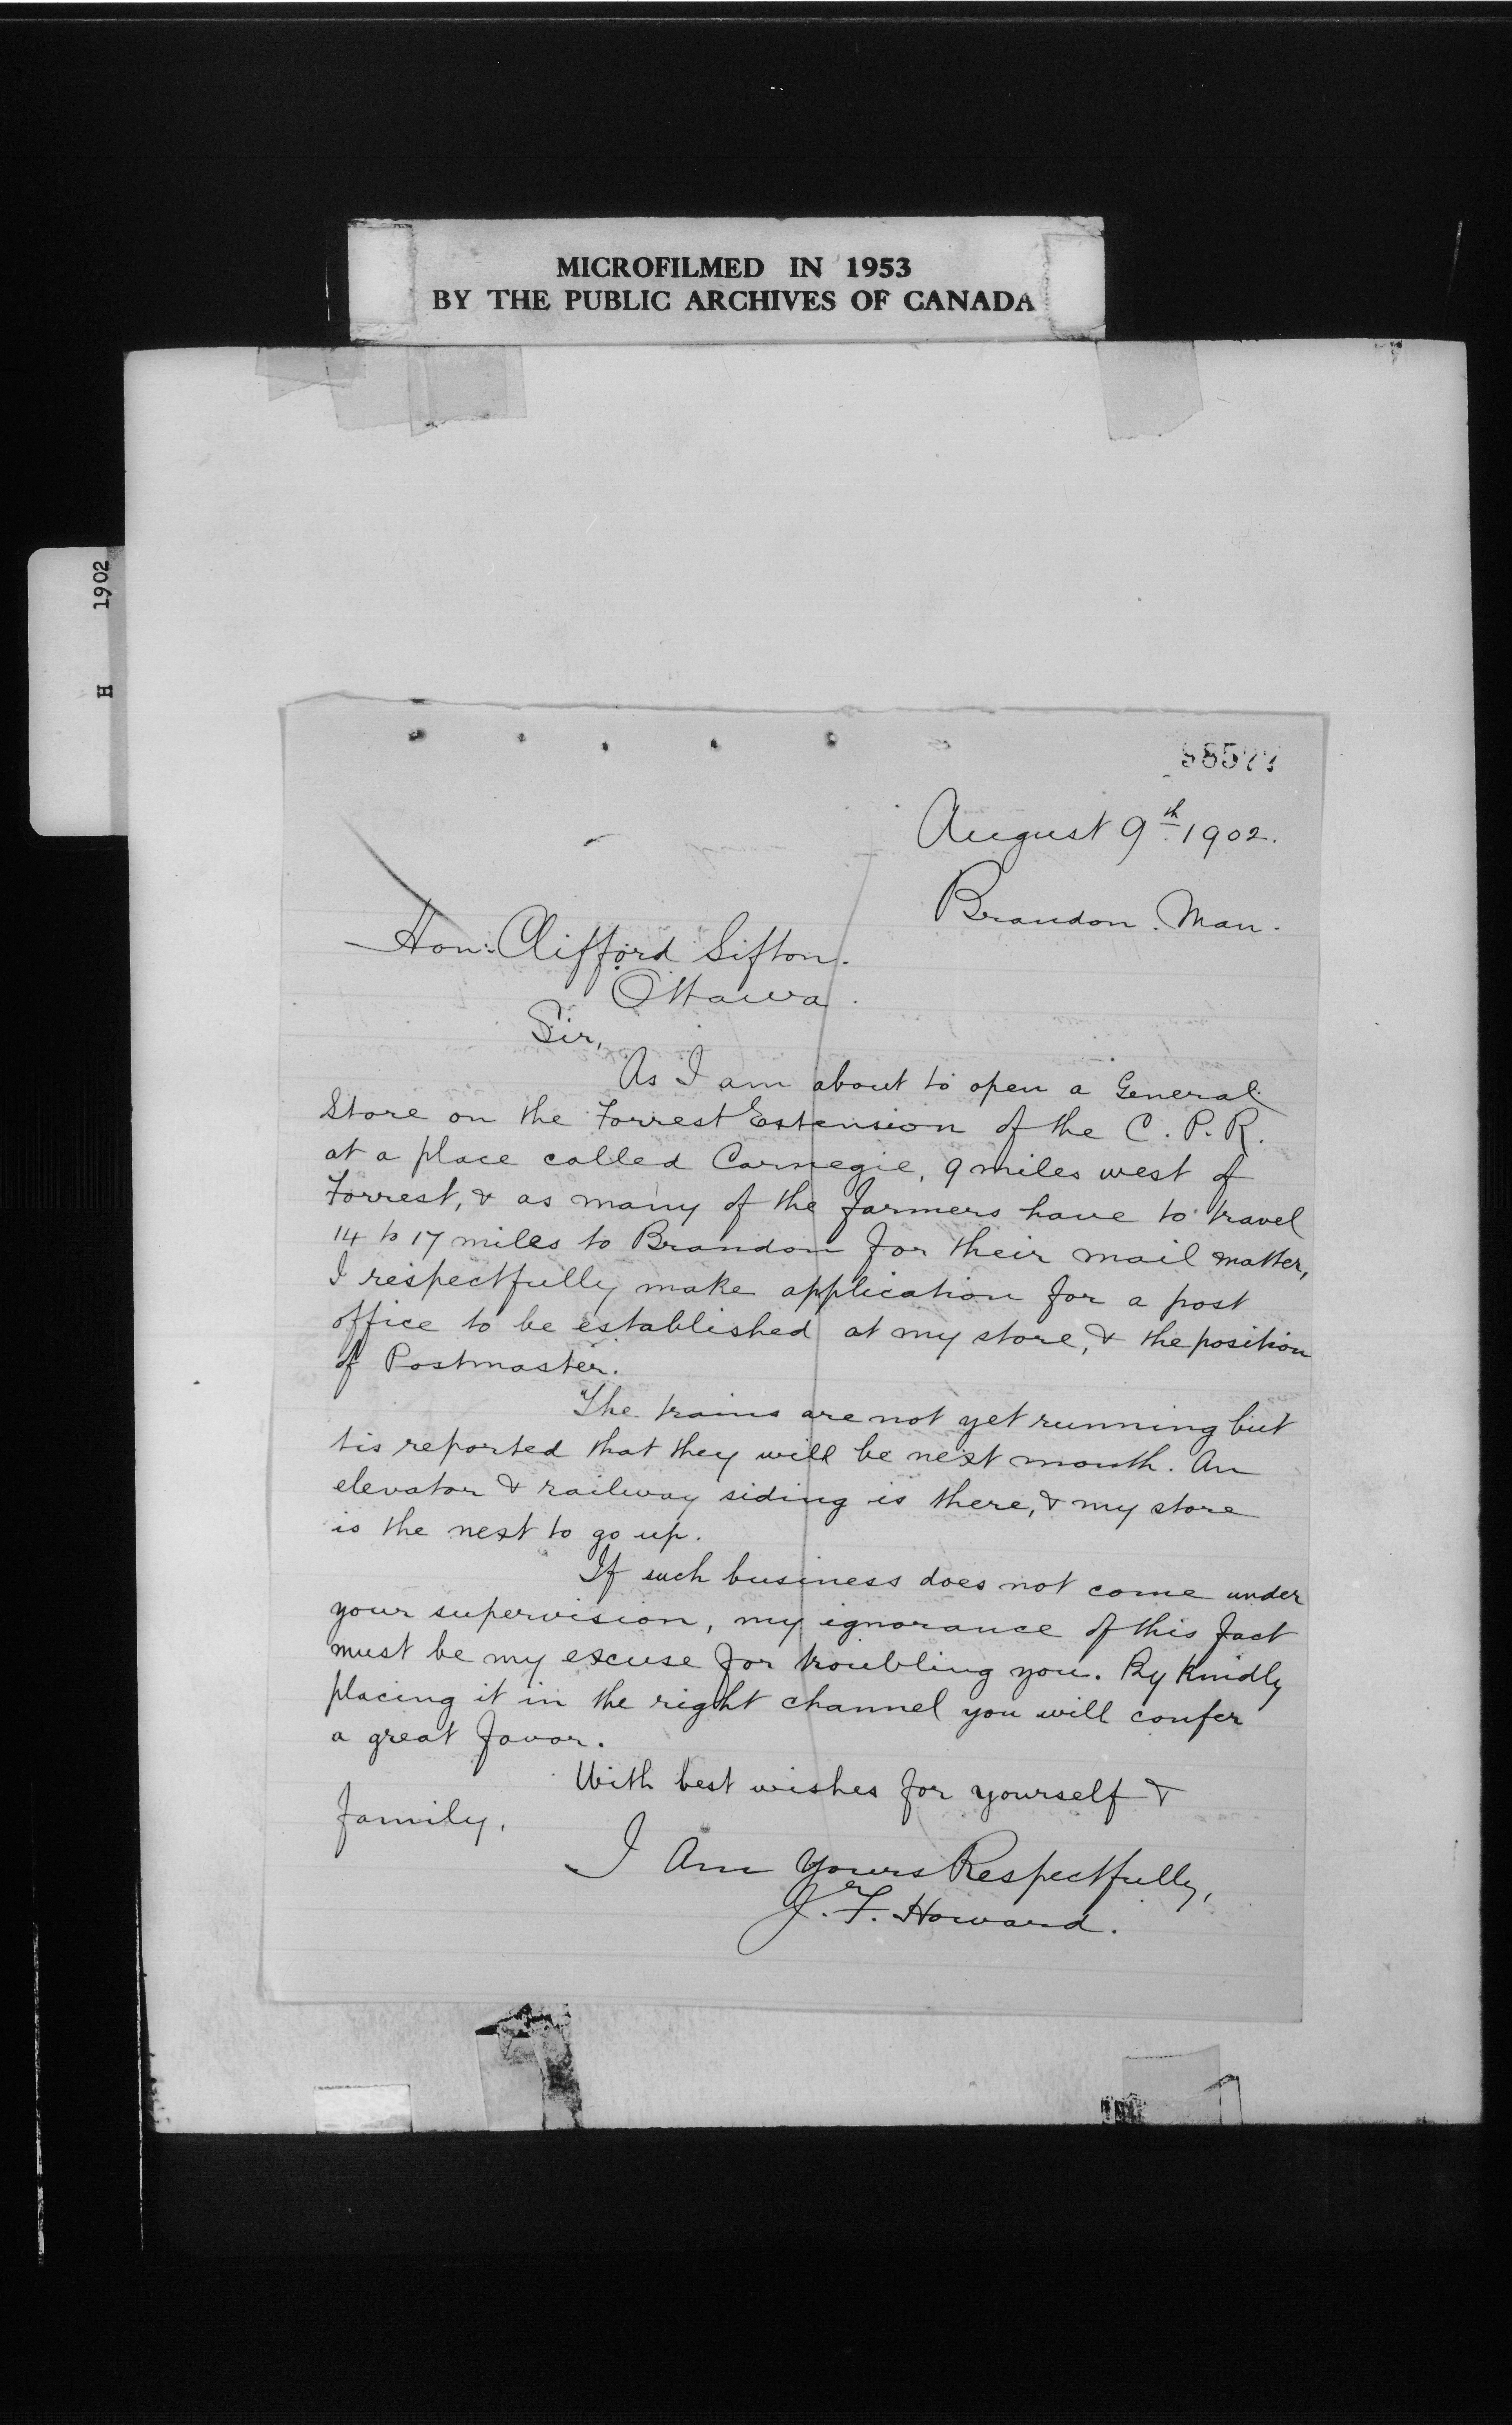 MICROFILMED IN 1953
BY THE PUBLIC ARCHIVES OF CANADA
H 1902
98577
August 9th 1902.
Brandon. Man.
Hon: Clifford Sifton.
Ottawa.
Sir,
As I am about to open a General
Store on the Forrest Extension of the C. P. R.
at a place called Carnegie, 9 miles west of
Forrest, & as many of the farmers have to travel
14 to 17 miles to Brandon for their mail matter,
I respectfully make application for a post
office to be established at my store, & the position
of Postmaster.
The trains are not yet running but
tis reported that they will be next month. An
elevator & railway siding is there, & my store
is the next to go up.
If such business does not come under
your supervision, my ignorance of this fact
must be my excuse for troubling you. By Kindly
placing it in the right channel you will confer
a great favor.
With best wishes for yourself &
family.
I Am Yours Respectfully,
J. F. Howard.